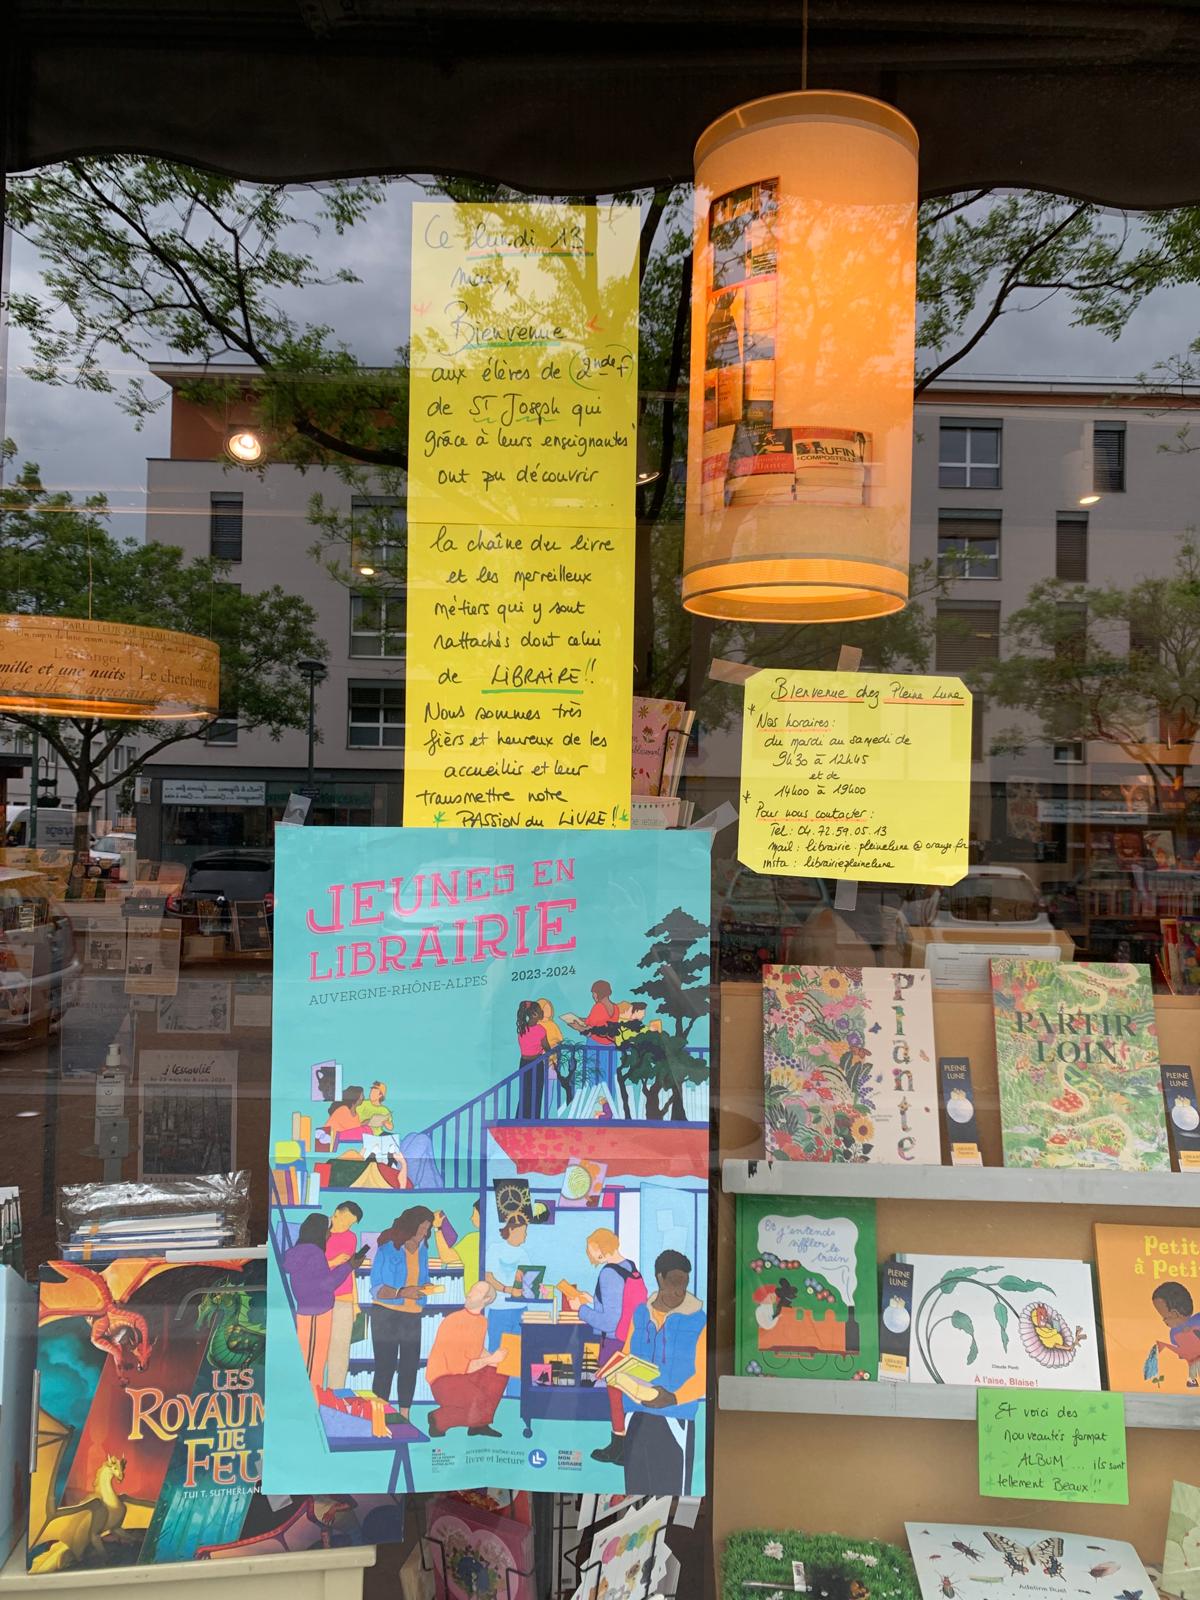 Ce lundi 13
mai,
Bienvenue
aux élèves de 2nde F
de ST Joseph qui
grâce à leurs enseignantes
ont pu découvrir
....
la chaîne du livre
et les merveilleux
métiers qui y sont
rattachés dont celui
de LIBRAIRE!!
Nous sommes très
fièrs et heureux de les
accueillir et leur
transmettre notre
* PASSION du LIVRE!! *
RUFIN
COMPOSTELLE
L'étranger
mille et une nuits
Le chercheur d'
Bienvenue chez Pleine Lune
* Nos horaires :
du mardi au samedi de
9h30 à 12h45
et de
14h00 à 19h00
* Pour nous contacter :
Tel : 04.72.59.05.13
Mail : librairie.pleinelune@orange.fr
Insta : librairiepleinelune
JEUNES EN
LIBRAIRIE
AUVERGNE-RHÔNE-ALPES 2023-2024
AUVERGNE-RHÔNE-ALPES
livre et lecture
CHEZ
MON
LIBRAIRE
Plante
PLEINE
LUNE
PARTIR
LOIN
PLEINE
LUNE
Et j'entends
siffler le
train
PLEINE
LUNE
Claude Ponti
À l'aise, Blaise!
Petit
à Petit
Et voici des
nouveautés format
ALBUM... ils sont
tellement Beaux!!
Adeline Ruel
LES
ROYAUM
DE
FEU
TUI T. SUTHERLAN